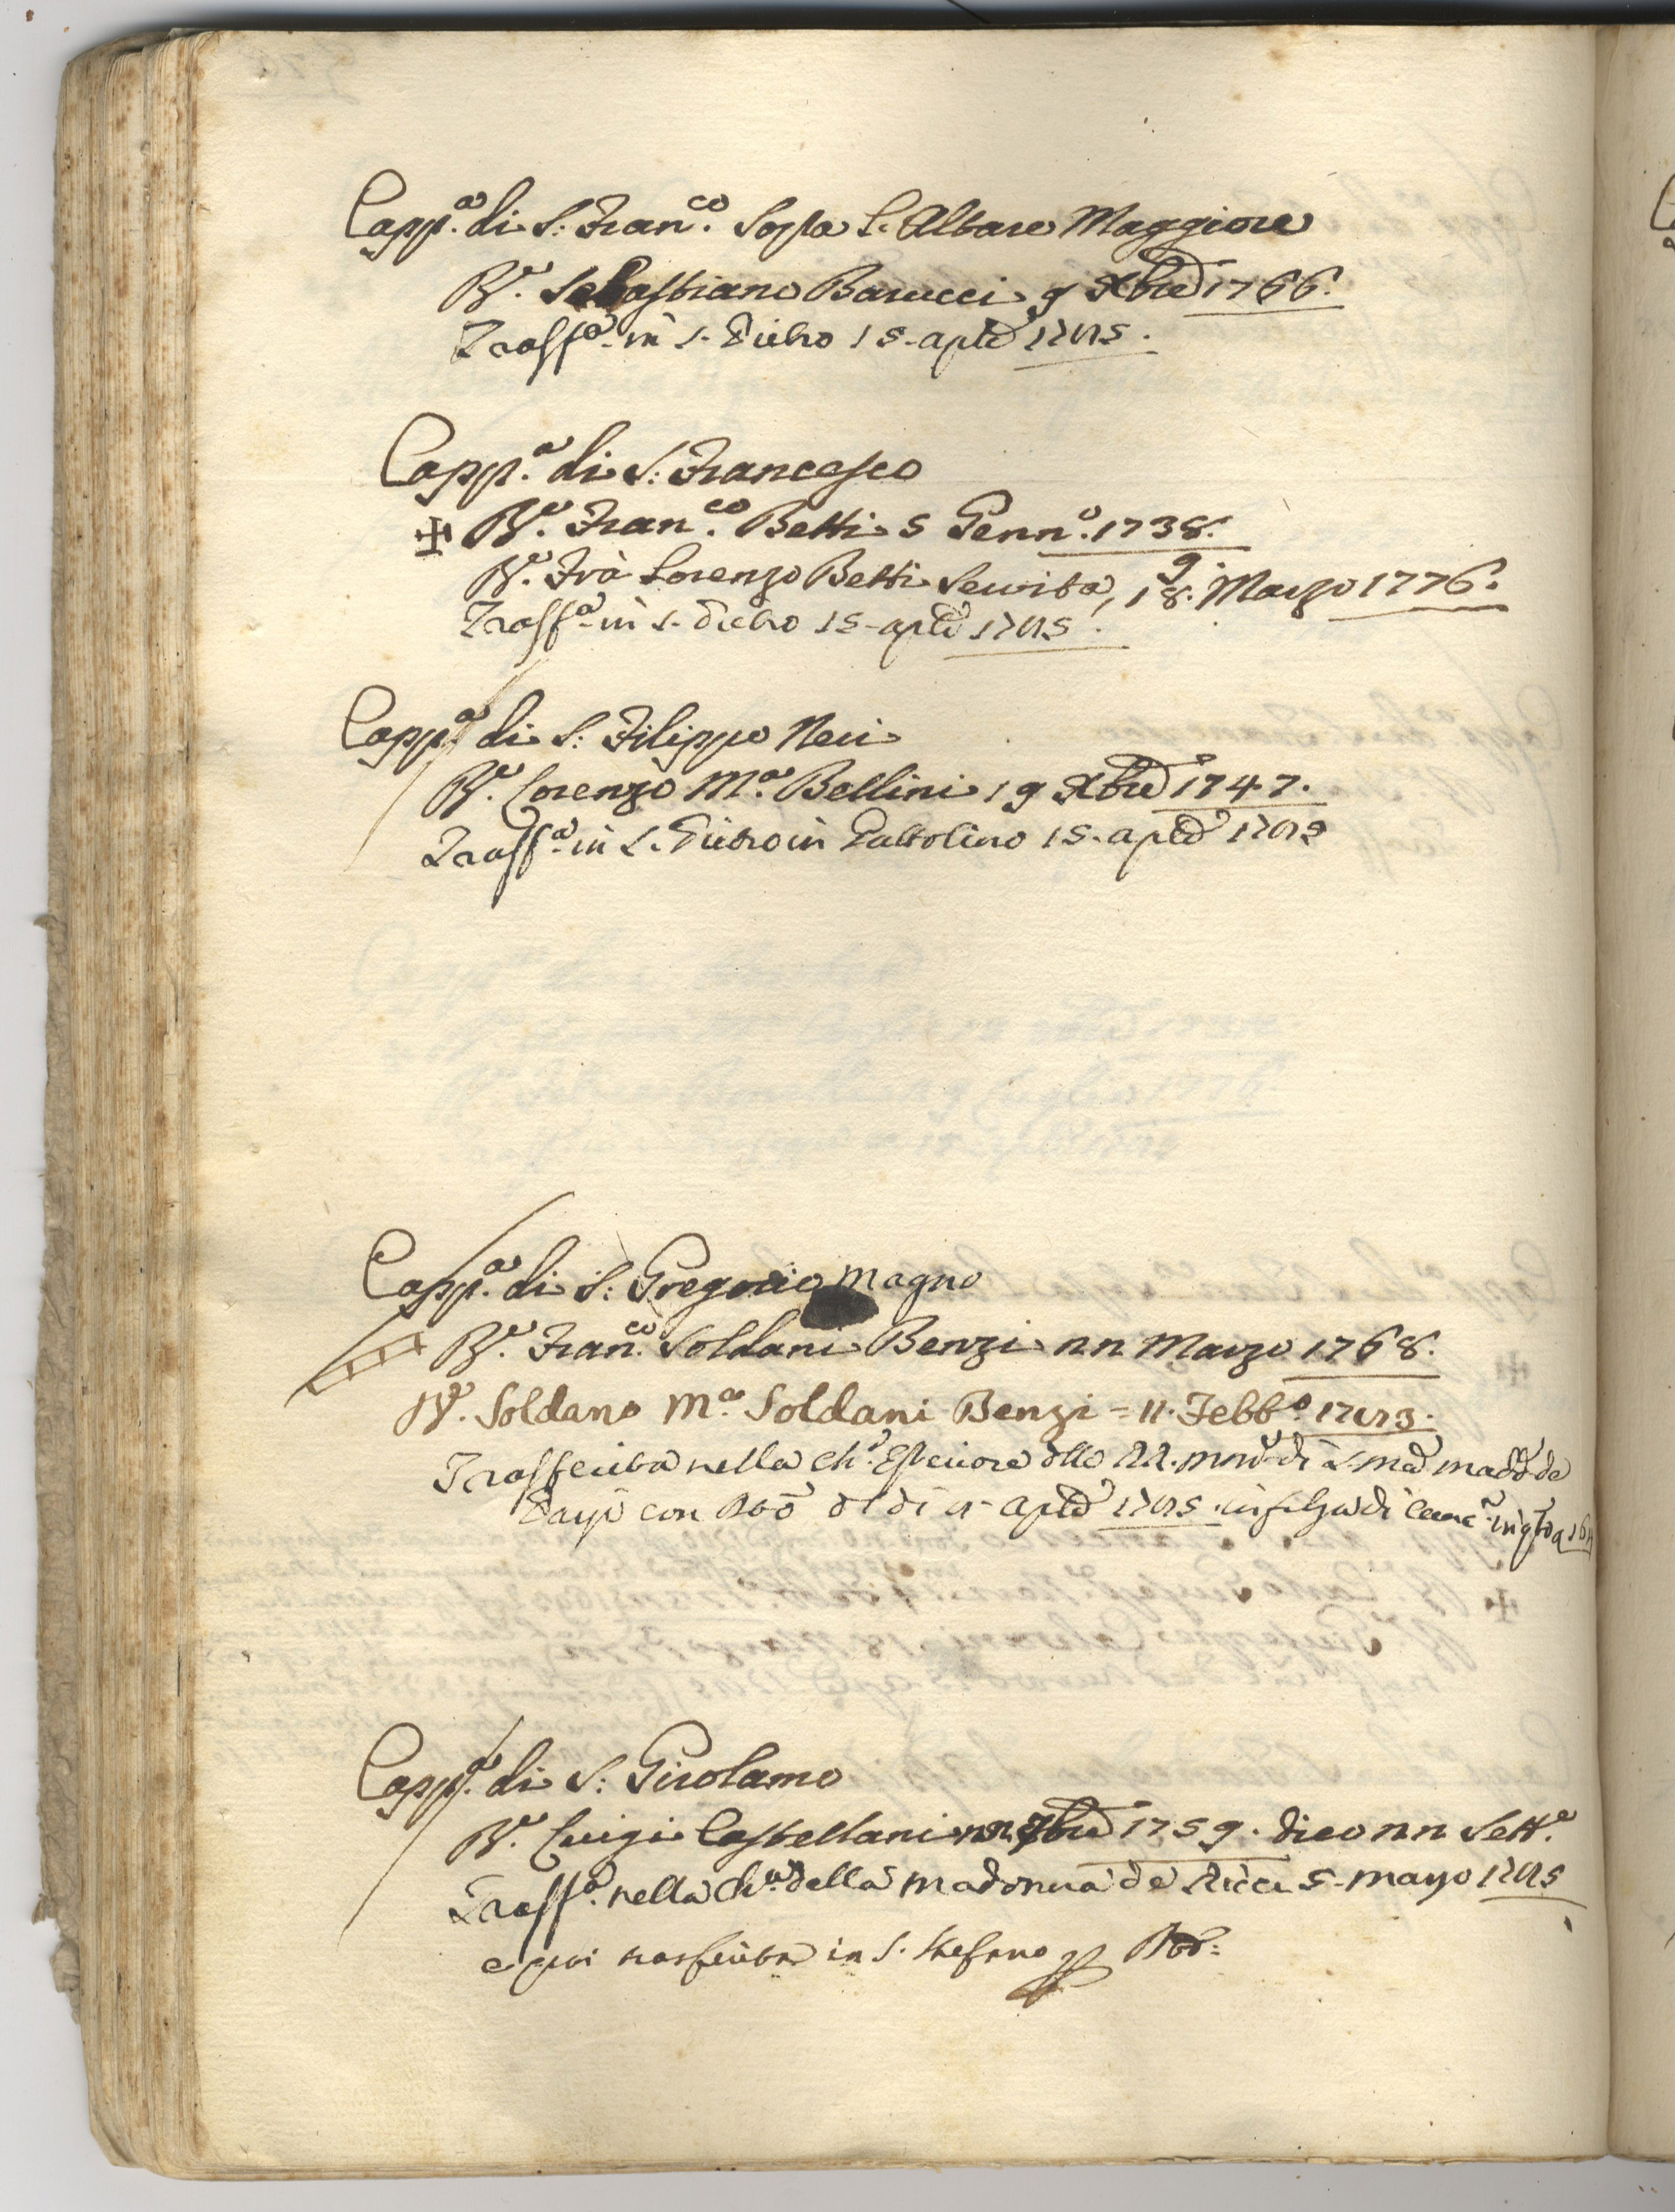 Capp.a di S: Fran.co Sop.a l'Altare Maggiore
R.e Sebastiano Barucci 9 Xbre 1766.
Trasf.a in S. Pietro 15. aple 1785.
Capp.a di S: Francesco
✠ R.e Fran.co Betti 5 Genn.o 1738.
R.e Frà Lorenzo Betti Servita, 18. Marzo 1776.
Trasf.a in S. Pietro 15. aple 1785.
Capp.a di S: Filippo Neri
R.e Lorenzo M.a Bellini 19 Xbre 1747.
Trasf.a in S. Pietro in Gattolino 15. aple 1785
Capp.a di S: Gregorio Magno
R.e Fran.co Soldani Benzi 22 Marzo 1768.
R.e Soldano M.a Soldani Benzi = 11. Febb.o 1783.
Trasferita nella Ch.a Esteriore dlle RR. Mon.e di S. M.a Madd.a de
Pazzi con di 8 aple 1785. in filza di
Capp.a di S: Girolamo
R.e Luigi Castellani 22 7bre 1759. dico 22 Sett.e
Trasf.a nella Ch.a della Madonna de Ricci 5. Mago 1785
e poi trasferita in S. Stefano